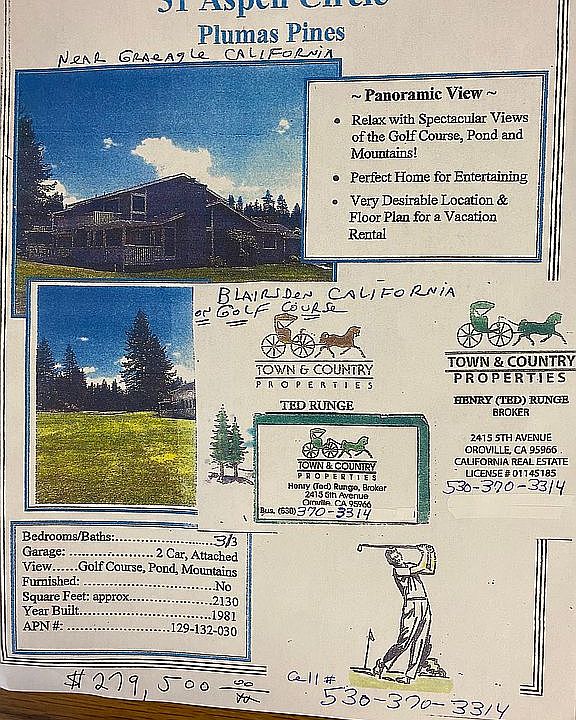 51 Aspen Circle
Plumas Pines
NEAR GRAEAGLE CALIFORNIA
~ Panoramic View ~
• Relax with Spectacular Views
of the Golf Course, Pond and
Mountains!
• Perfect Home for Entertaining
• Very Desirable Location &
Floor Plan for a Vacation
Rental
BLAIRSDEN CALIFORNIA
ON GOLF COURSE
TOWN & COUNTRY
PROPERTIES
TED RUNGE
TOWN & COUNTRY
PROPERTIES
Henry (Ted) Runge, Broker
2415 5th Avenue
Oroville, CA 95966
Bus. (530) 370-3314
TOWN & COUNTRY
PROPERTIES
HENRY (TED) RUNGE
BROKER
2415 5TH AVENUE
OROVILLE, CA 95966
CALIFORNIA REAL ESTATE
LICENSE # 01145185
530-370-3314
Bedrooms/Baths:..........................3/3
Garage:......................2 Car, Attached
View......Golf Course, Pond, Mountains
Furnished:....................................No
Square Feet: approx.....................2130
Year Built....................................1981
APN #:............................129-132-030
$279,500 00/xx
Cell #
530-370-3314